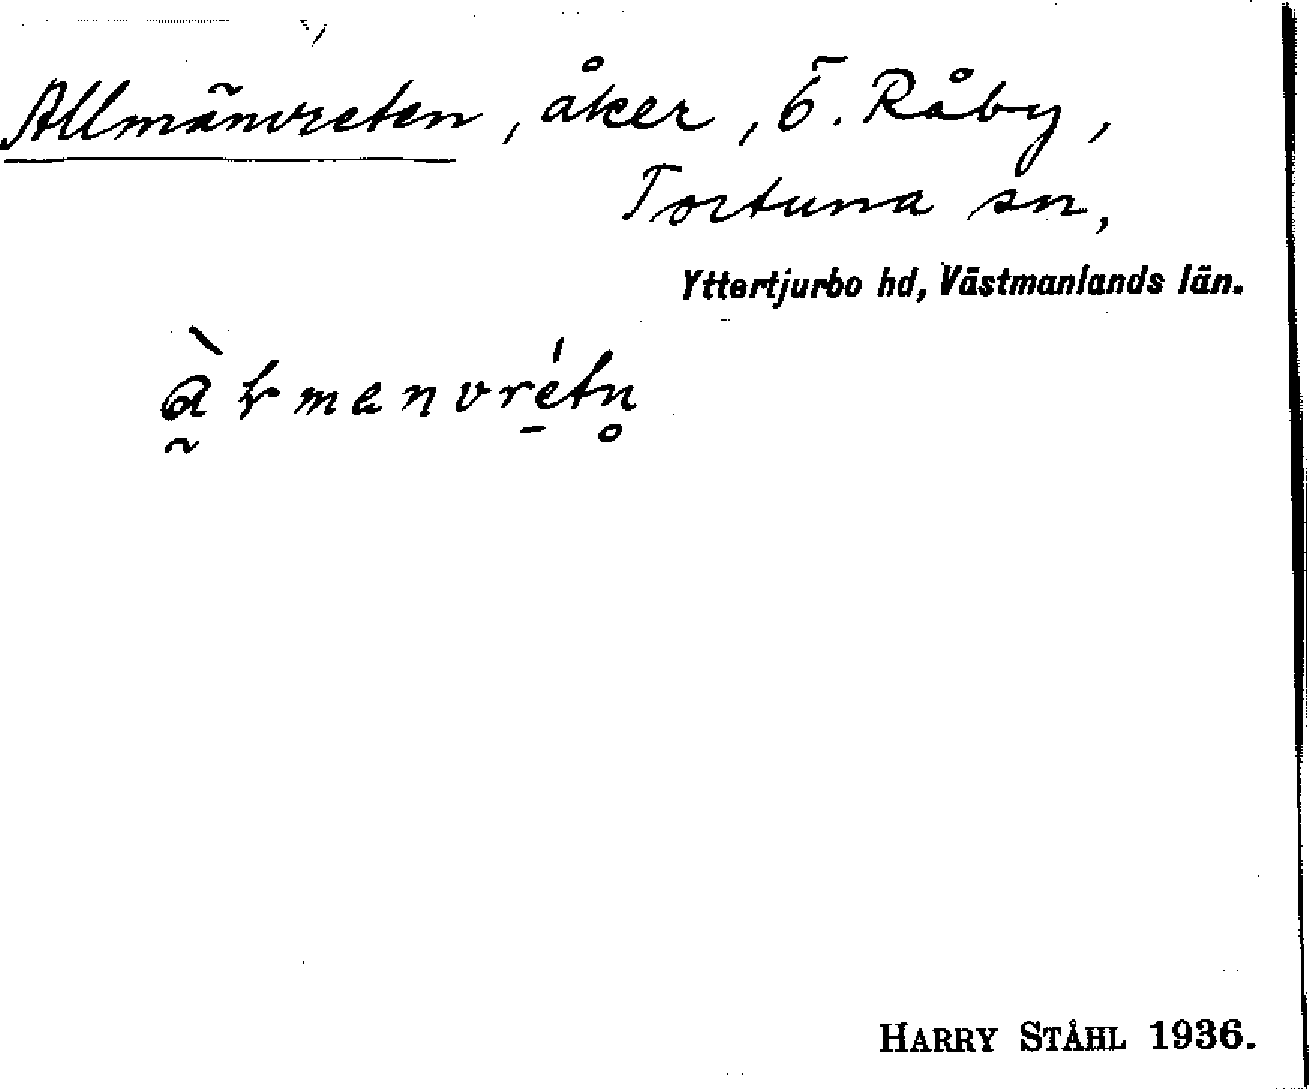 Allmänvreten, åker, Ö. Råby,
Tortuna sn,
Yttertjurbo hd, Västmanlands län.
HARRY STÅHL 1936.